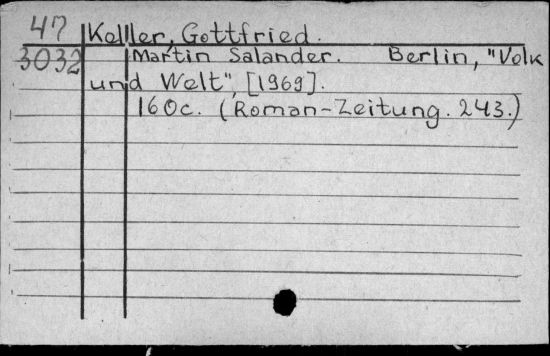 47 Keller, Gottfried.
3032 Martin Salander. Berlin, "Volk
und Welt", [1969].
160c. (Roman-Zeitung. 243.)